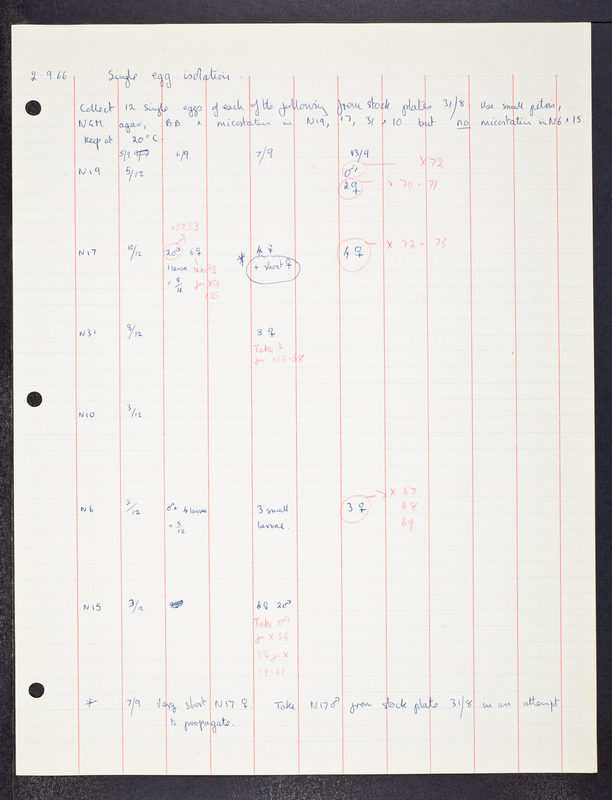 2.9.66 Single egg isolation.
Collect 12 single eggs of each of the following from stock plates 31/8. Use small petris,
NGM agar, BB + micostatin in N19, 17, 31 + 10 but no micostatin in N6 + 15.
Keep at 20°C.
5/9 6/9 7/9 13/9
N19 5/12 ♂ x 72
2♀ x 70 + 71
x 52, 53
N17 10/12 2♂ 6♀ * 4♀ 4♀ x 72 - 75
1 larva + short ♀
= 9/12 for x 54
x 55
N31 8/12 8♀
Take 3
for x 56-58
N10 3/12
N6 2/12 ♂ 4 larvae 3 small 3♀ x 67
+ 5/12 larvae. 68
69
N15 3/12 4♀ 2♂
Take ♂
for x 56
3♀ for x
59-61
* 7/9 Very short N17 ♀. Take N17♂ from stock plate 31/8 in an attempt
to propagate.